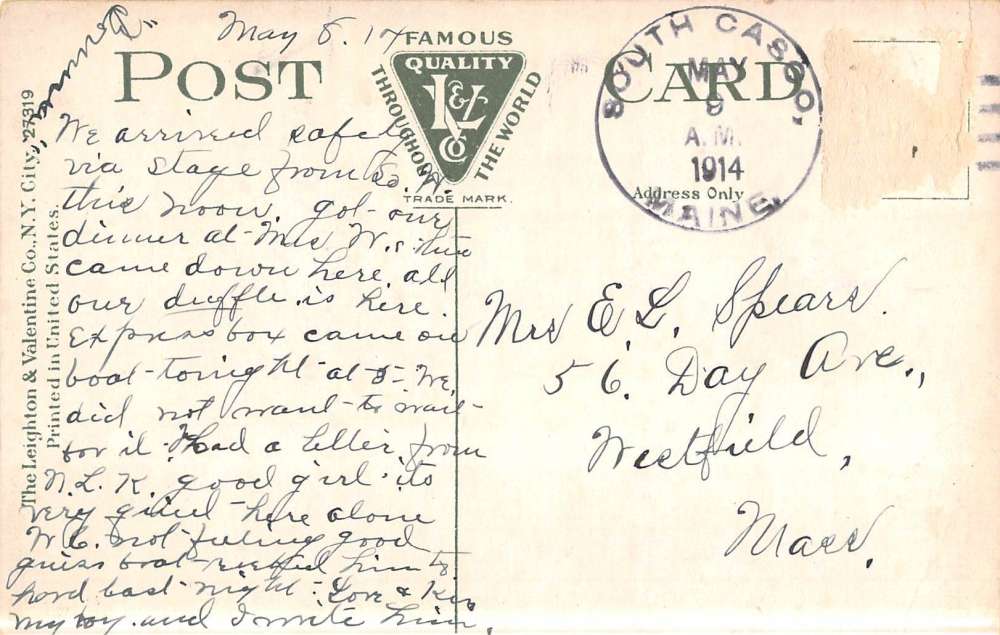 May 8. 14
POST CARD
FAMOUS
QUALITY
L & V
Co
THROUGHOUT
THE WORLD
TRADE MARK.
SOUTH CASCO,
MAY
9
A.M.
1914
MAINE.
Address Only
The Leighton & Valentine Co., N.Y. City, 27319
Printed in United States.
We arrived safely
via stage from
this noon. got our
dinner at Mrs W.s
came down here. all
our duffle is here.
Express box came on
boat tonight at 5. We
did not want to wait
for it. Had a letter from
N. L. K. good girl. its
very quiet here alone
W C. not feeling good
guess boat him to
hard last night. Love & Kiss
my boy. and I write him.
Mrs E. L. Spears.
56. Day Ave.,
Westfield,
Mass.